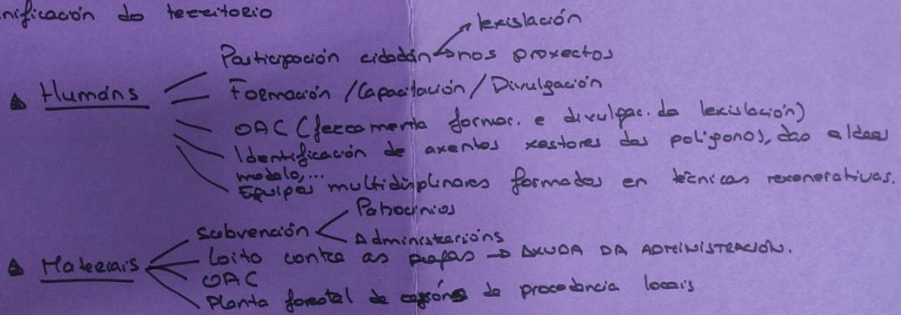 nificación do territorio
lexislación
Participación cidadán nos proxectos
▲ Humáns
Formación / Capacitación / Divulgación
OAC (ferramenta formac. e divulgac. da lexislación)
Identificación de axentes xestores dos polígonos, das aldeas
modelo,...
Equipos multidisplinares formados en técnicas rexenerativas.
Patrocinios
Subvención
Administracións
▲ Materiais
Loita contra as plagas → AXUDA DA ADMINISTRACIÓN.
OAC
Planta forestal de de procedencia locais